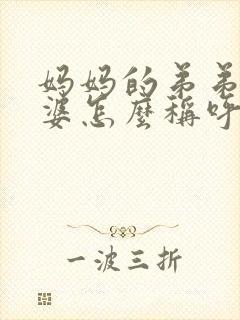 妈妈的弟弟
婆怎麼稱呼
一波三折